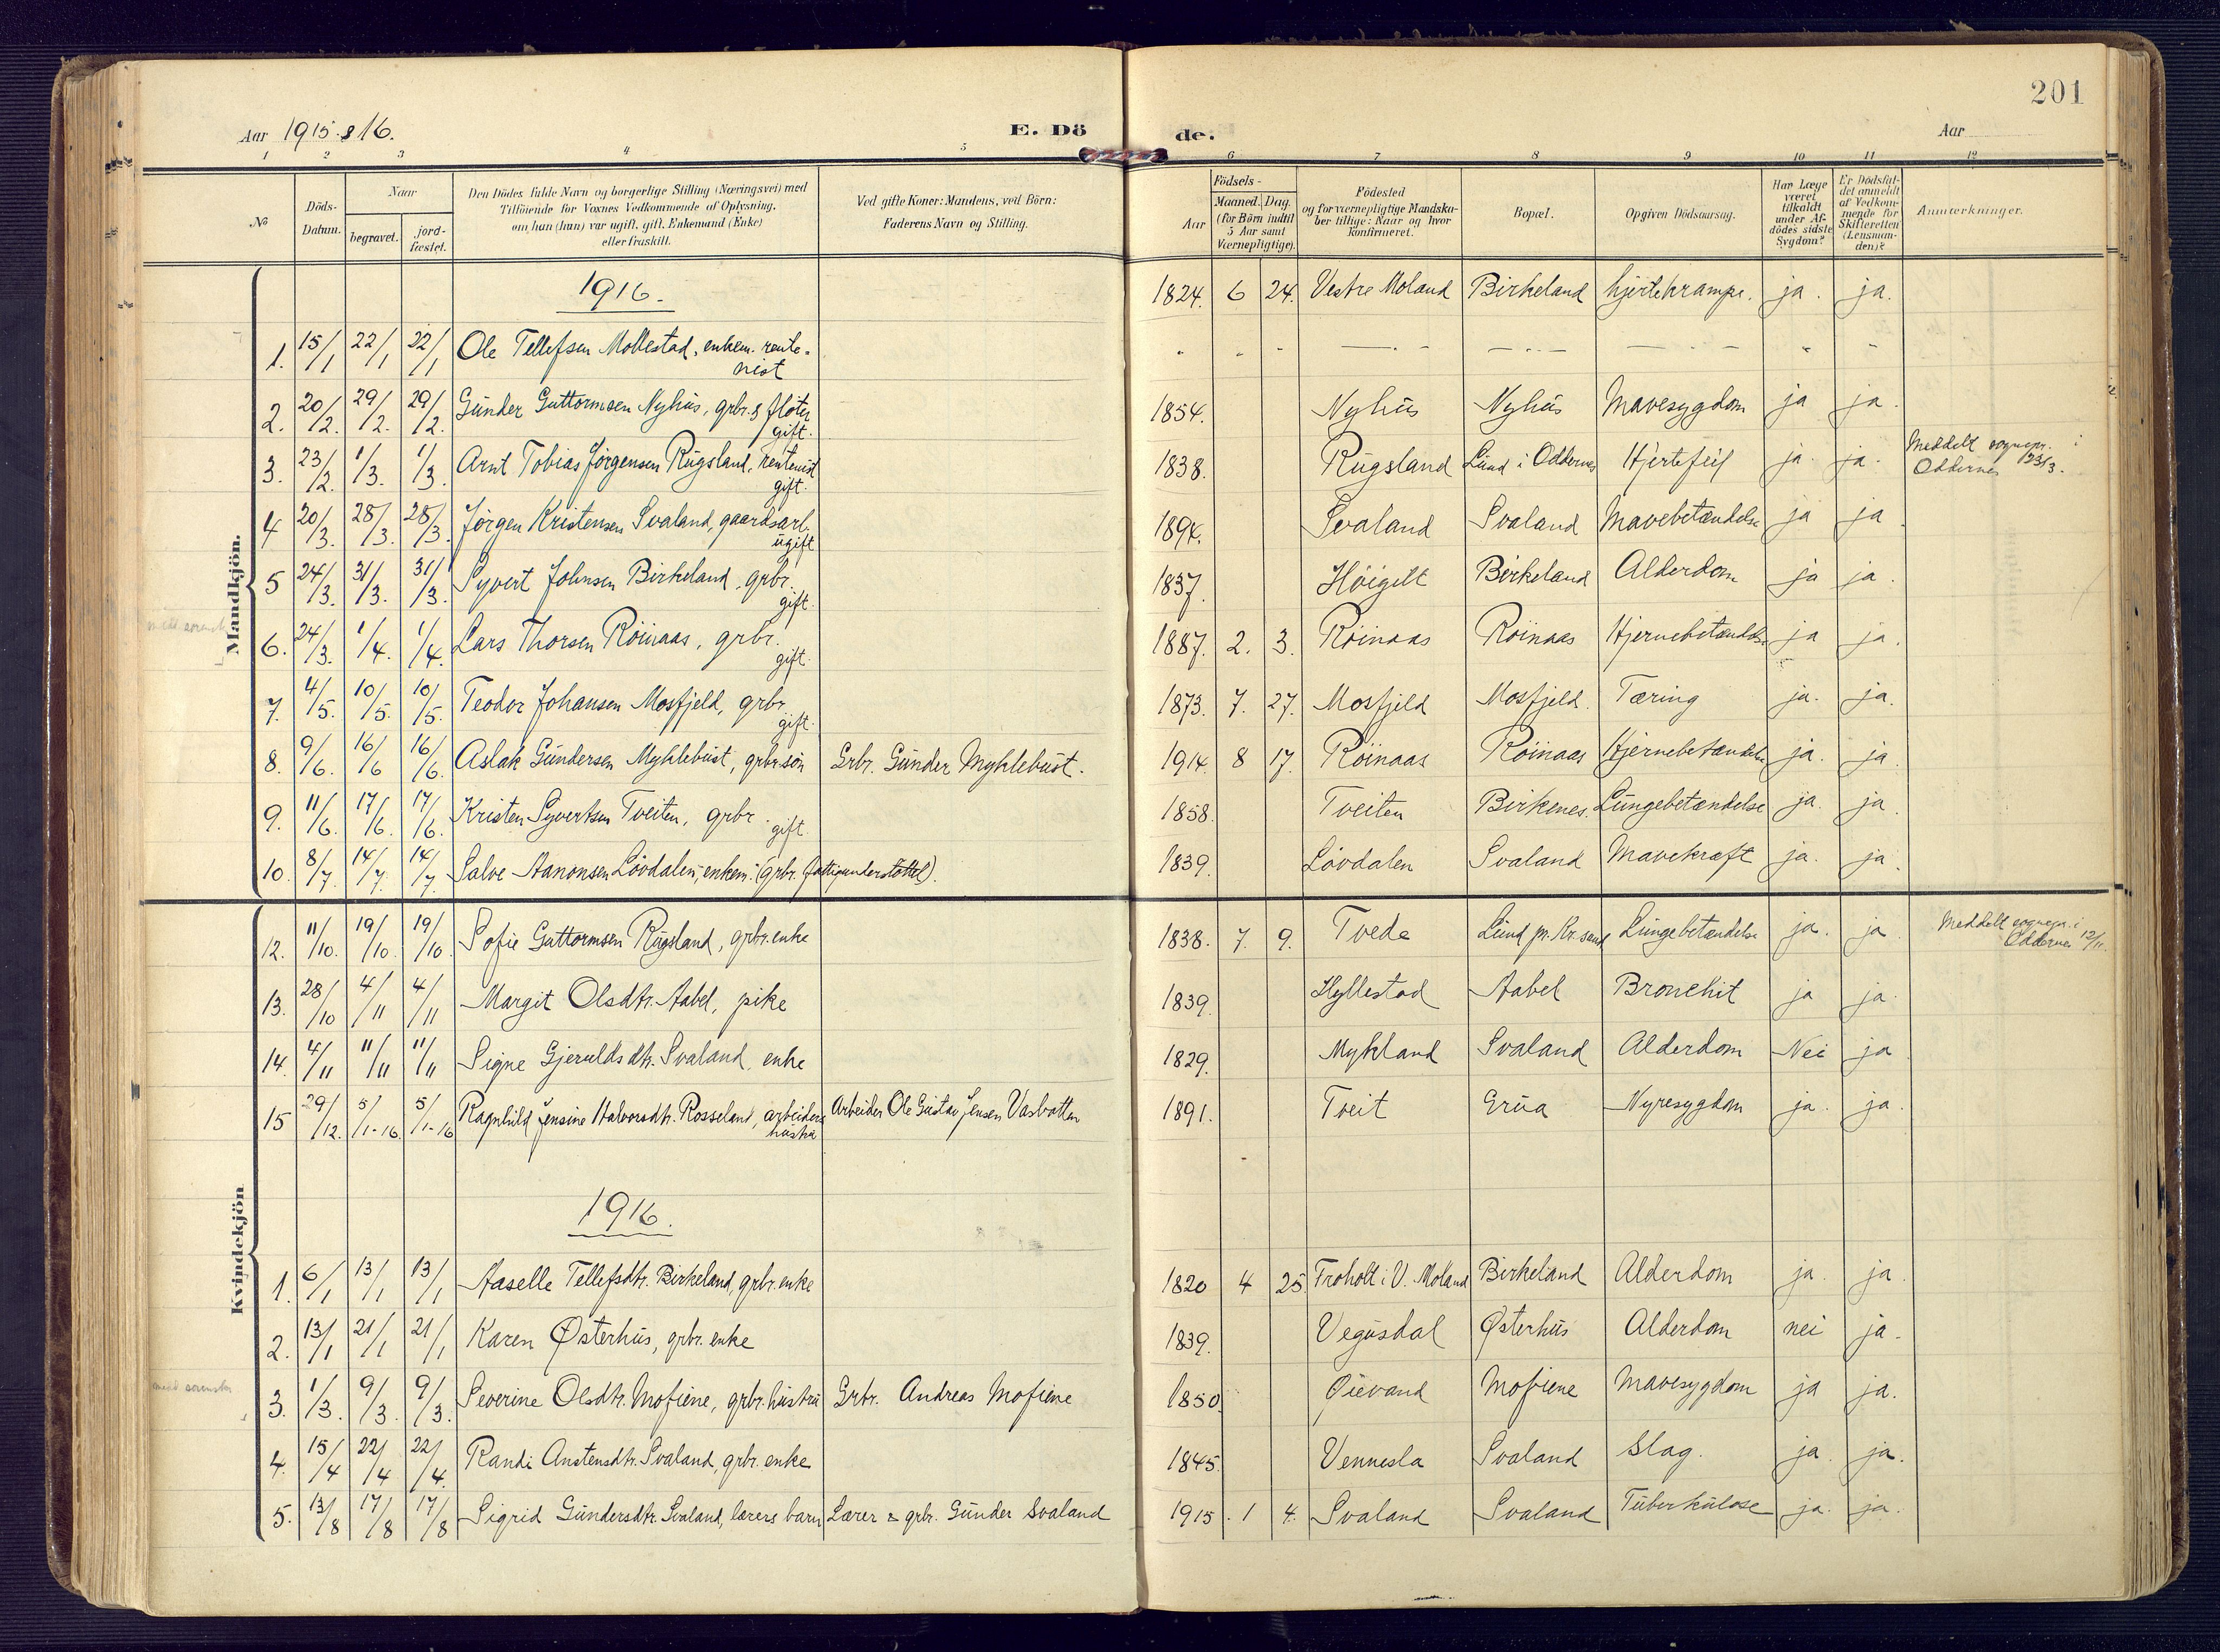 201
Aar 1915 & 16.
E. Dö de.
Aar
1 2 3 4 5 6 7 8 9 10 11 12
№
Döds-Datum.
Naar
begravet.
jord-fæstet.
Den Dödes fulde Navn og borgerlige Stilling (Næringsvei) med
Tilföiende for Voxnes Vedkommende af Oplysning,
om han (hun) var ugift, gift, Enkemand (Enke)
eller fraskilt.
Ved gifte Koner: Mandens, ved Börn:
Faderens Navn og Stilling.
Födsels-
Aar
Maaned. Dag.
(for Börn indtil
5 Aar samt
Værnepligtige).
Födested
og for værnepligtige Mandska-
ber tillige: Naar og hvor
konfirmeret.
Bopæl.
Opgiven Dödsaarsag.
Har Læge
været
tilkaldt
under Af-
dödes sidste
Sygdom?
Er Dödsfal-
det anmeldt
af Vedkom-
mende for
Skifteretten
(Lensman-
den)?
Anmærkninger.
Mandkjön.
1916.
1824. 6 24. Vestre Moland Birkeland hjertekrampe. ja. ja.
1. 15/1 22/1 22/1 Ole Tellefsen Mollestad, enkem. rente-
nist
2. 20/2. 29/2. 29/2. Gunder Guttormsen Nyhus, grbr. & fløter
gift. 1854. Nyhus Nyhus Mavesygdom ja ja.
3. 23/2. 1/3. 1/3. Arnt Tobias Jörgensen Rugsland, rentenist
gift. 1838. Rugsland Lund i Oddernes Hjertefeil ja. ja. Meddelt sognepr. i
Oddernes 23/3.
4 20/3. 28/3. 28/3. Jörgen Kristensen Svaland, gaardsarb.
ugift 1894. Svaland Svaland Mavebetændelse ja ja
5 24/3. 31/3. 31/3. Syvert Johnsen Birkeland, grbr.
gift. 1837. Höigilt Birkeland Alderdom ja ja.
6. 24/3. 1/4. 1/4. Lars Thorsen Röinaas, grbr.
gift. 1887. 2. 3. Röinaas Röinaas Hjernebetændelse ja ja.
7. 4/5. 10/5. 10/5. Teodor Johansen Mosfjeld, grbr.
gift. 1873. 7. 27. Mosfjeld Mosfjeld. Tæring ja. ja.
8. 9/6. 16/6 16/6. Aslak Gundersen Myklebust, grbr.sön Grbr. Gunder Myklebust. 1914. 8 17. Röinaas Röinaas Hjernebetændelse ja. ja.
9. 11/6. 17/6. 17/6. Kristen Syvertsen Tveiten, grbr.
gift. 1858. Tveiten Birkenes. Lungebetændelse ja. ja
10. 8/7. 14/7. 14/7. Salve Aanonsen Lövdalen, enkem. (grbr. fattigunderstöttet). 1839. Lövdalen Svaland Mavekræft ja. ja.
Kvindekjön
12. 11/10. 19/10. 19/10. Sofie Guttormsen Rugsland, grbr. enke 1838. 7. 9. Tvede Lund pr. Kr.sand Lungebetændelse ja. ja Meddelt sognepr. i
Oddernes 12/11.
13. 28/10 4/11 4/11 Margit Olsdtr. Aabel, pike 1839. Hyllestad Aabel Bronchit ja ja.
14. 4/11 11/11 11/11 Signe Gjeruldsdtr. Svaland, enke 1829. Mykland Svaland Alderdom Nei ja
15 29/12. 5/1-16. 5/1-16 Ragnhild Jensine Halvorsdtr. Rosseland, arbeiders
hustru Arbeider Ole Gustav Jensen Vasbotten 1891. Tveit Grua Nyresygdom ja. ja.
1916.
1. 6/1 13/1 13/1 Aaselle Tellefsdtr. Birkeland, grbr. enke 1820 4 25. Troholt i V. Moland Birkeland Alderdom ja. ja.
2. 13/1 21/1 21/1 Karen Østerhus, grbr. enke 1839. Vegusdal Østerhus Alderdom nei ja.
3. 1/3. 9/3. 9/3. Severine Olsdtr. Mofiene, grbr. hustru Grbr. Andreas Mofiene 1850. Øievand Mofiene Mavesygdom ja ja.
4. 15/4 22/4 22/4. Randi Anstensdtr. Svaland, grbr. enke 1845. Vennesla Svaland Slag. ja. ja.
5. 13/8 17/8 17/8 Sigrid Gundersdtr. Svaland, lærers barn Lærer & grbr. Gunder Svaland 1915. 1 4. Svaland Svaland Tuberkulose ja. ja.